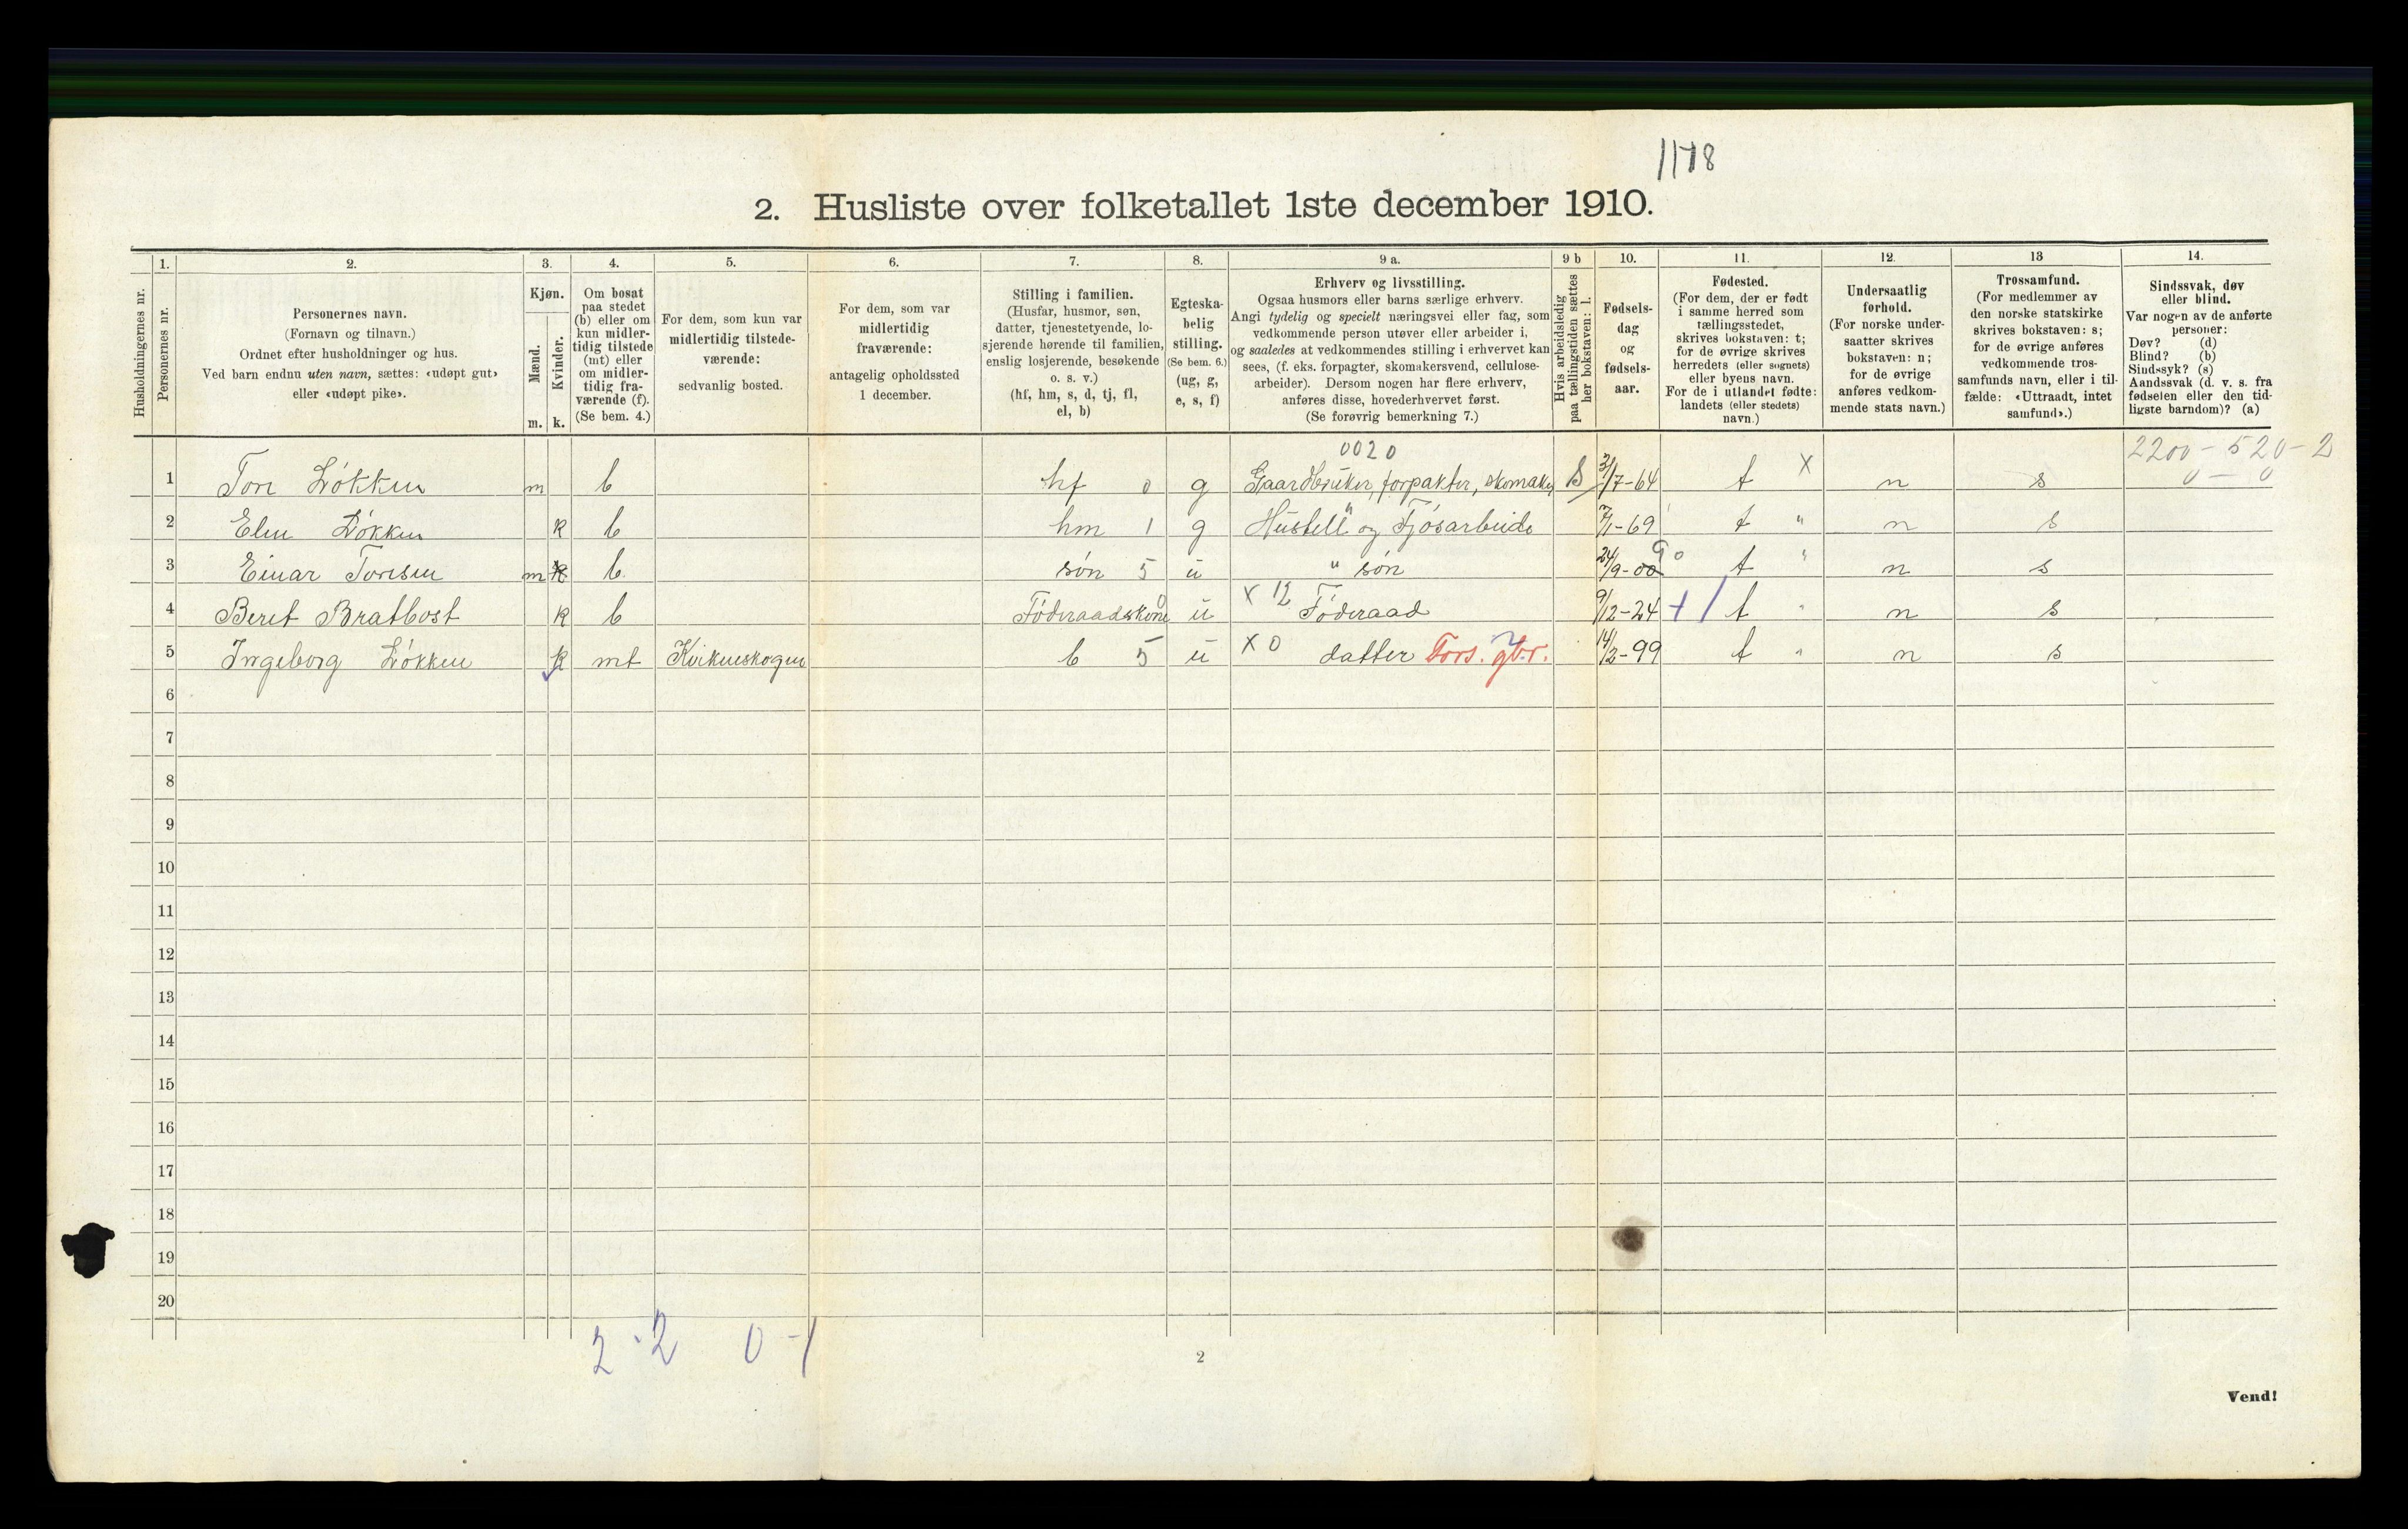 1178
2. Husliste over folketallet 1ste december 1910.
Husholdningernes nr.
1. Personernes nr.
2. Personernes navn.
(Fornavn og tilnavn.)
Ordnet efter husholdninger og hus.
Ved barn endnu uten navn, sættes: «udøpt gut»
eller «udøpt pike».
3. Kjøn.
Mænd. m.
Kvinder. k.
4. Om bosat
paa stedet
(b) eller om
kun midler-
tidig tilstede
(mt) eller
om midler-
tidig fra-
værende (f).
(Se bem. 4.)
5. For dem, som kun var
midlertidig tilstede-
værende:
sedvanlig bosted.
6. For dem, som var
midlertidig
fraværende:
antagelig opholdssted
1 december.
7. Stilling i familien.
(Husfar, husmor, søn,
datter, tjenestetyende, lo-
sjerende hørende til familien,
enslig losjerende, besøkende
o. s. v.)
(hf, hm, s, d, tj, fl,
el, b)
8. Egteska-
belig
stilling.
(Se bem. 6.)
(ug, g,
e, s, f)
9 a. Erhverv og livsstilling.
Ogsaa husmors eller barns særlige erhverv.
Angi tydelig og specielt næringsvei eller fag, som
vedkommende person utøver eller arbeider i,
og saaledes at vedkommendes stilling i erhvervet kan
sees, (f. eks. forpagter, skomakersvend, cellulose-
arbeider). Dersom nogen har flere erhverv,
anføres disse, hovederhvervet først.
(Se forøvrig bemerkning 7.)
9 b Hvis arbeidsledig
paa tællingstiden sættes
her bokstaven: l.
10. Fødsels-
dag
og
fødsels-
aar.
11. Fødested.
(For dem, der er født
i samme herred som
tællingsstedet,
skrives bokstaven: t;
for de øvrige skrives
herredets (eller sognets)
eller byens navn.
For de i utlandet fødte:
landets (eller stedets)
navn.)
12. Undersaatlig
forhold.
(For norske under-
saatter skrives
bokstaven: n;
for de øvrige
anføres vedkom-
mende stats navn.)
13 Trossamfund.
(For medlemmer av
den norske statskirke
skrives bokstaven: s;
for de øvrige anføres
vedkommende tros-
samfunds navn, eller i til-
fælde: «Uttraadt, intet
samfund».)
14. Sindssvak, døv
eller blind.
Var nogen av de anførte
personer:
Døv? (d)
Blind? (b)
Sindssyk? (s)
Aandssvak (d. v. s. fra
fødselen eller den tid-
ligste barndom)? (a)
0020
2200 - 520 - 2
0 - 0
1 Tore Løkken m b hf 0 g Gaardbruker, forpakter, skomaker S 31/7-64 t X n s
2 Elen Løkken k b hm 1 g Husstell og Fjøsarbeide 7/1-69 t " n s
3 Einar Toresen m k b søn 5 u " søn 24/9-00 90 t " n s
4 Beret Bratbost k b Føderaadskone 0 u X 12 Føderaad 9/12-24 + / t " n s
5 Ingeborg Løkken k mt Kvikneskogen b 5 u X 0 datter Fors. gbr. 14/2-99 t " n s
6
7
8
9
10
11
12
13
14
15
16
17
18
19
20
2 - 2 0 - 1
2
Vend!